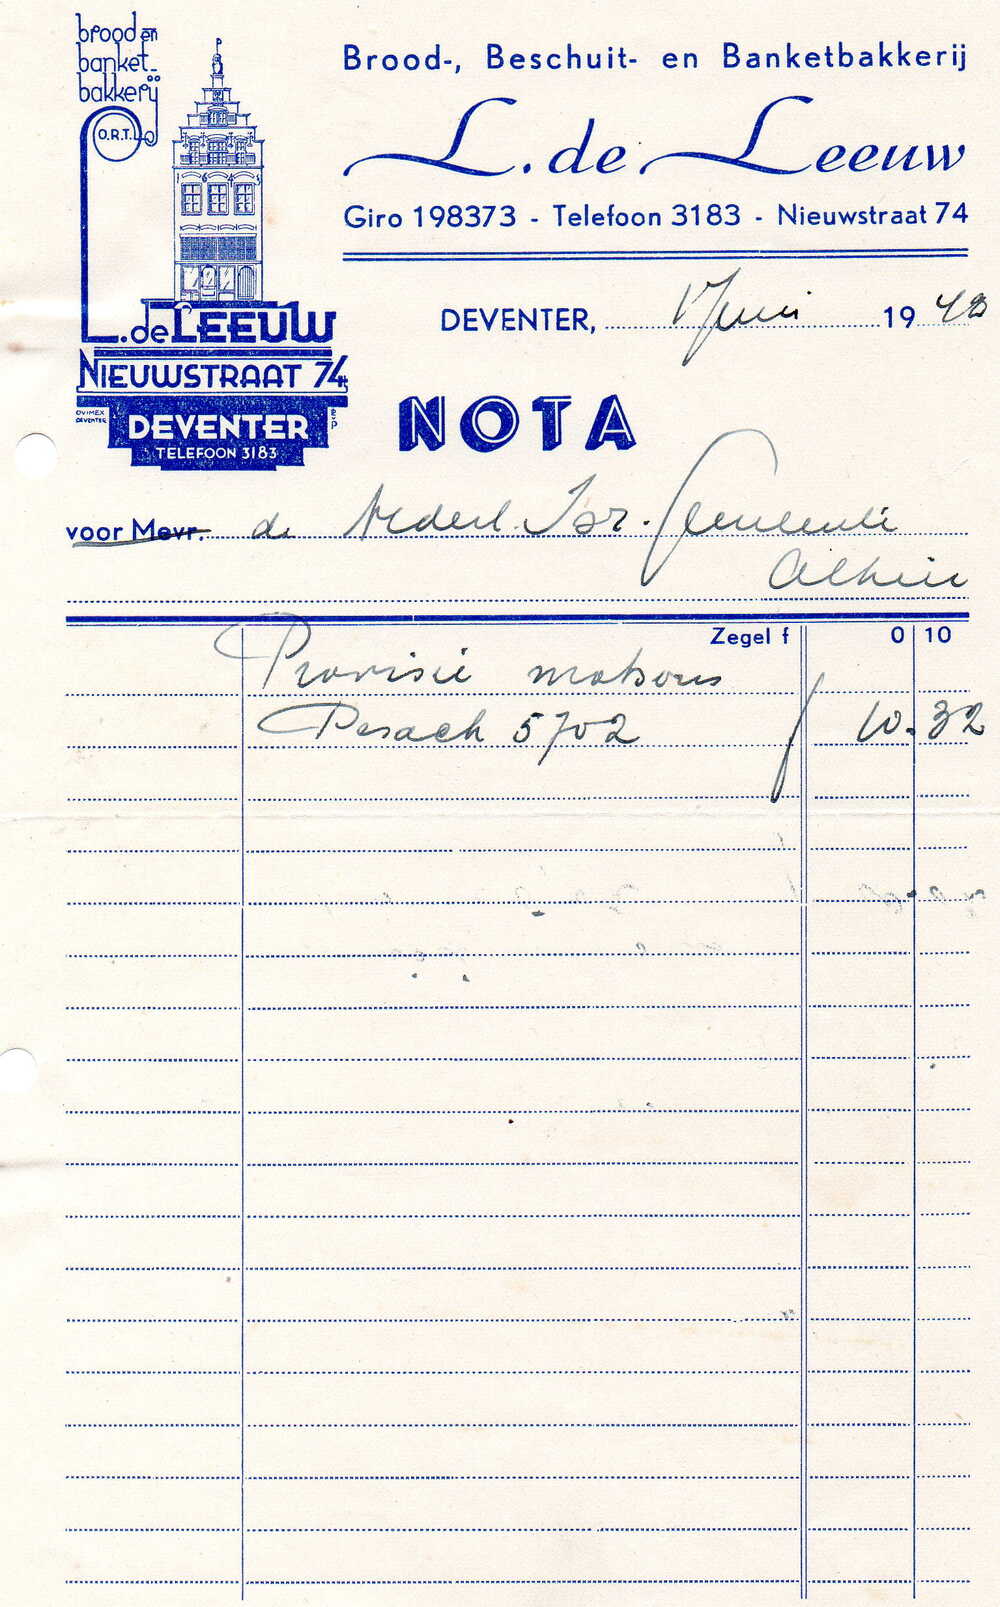 brood en
banket-
bakkerij
O.R.T.
1645
L. de LEEUW
NIEUWSTRAAT 74
OVIMEX
DEVENTER
DEVENTER
TELEFOON 3183
Brood-, Beschuit- en Banketbakkerij
L. de Leeuw
Giro 198373 - Telefoon 3183 - Nieuwstraat 74
DEVENTER, 1 Juni 1942
NOTA
voor Mevr. de Nederl. Isr. Gemeente
Alhier
Zegel f 0 10
Provisie matsous
Pesach 5702 f 10.32